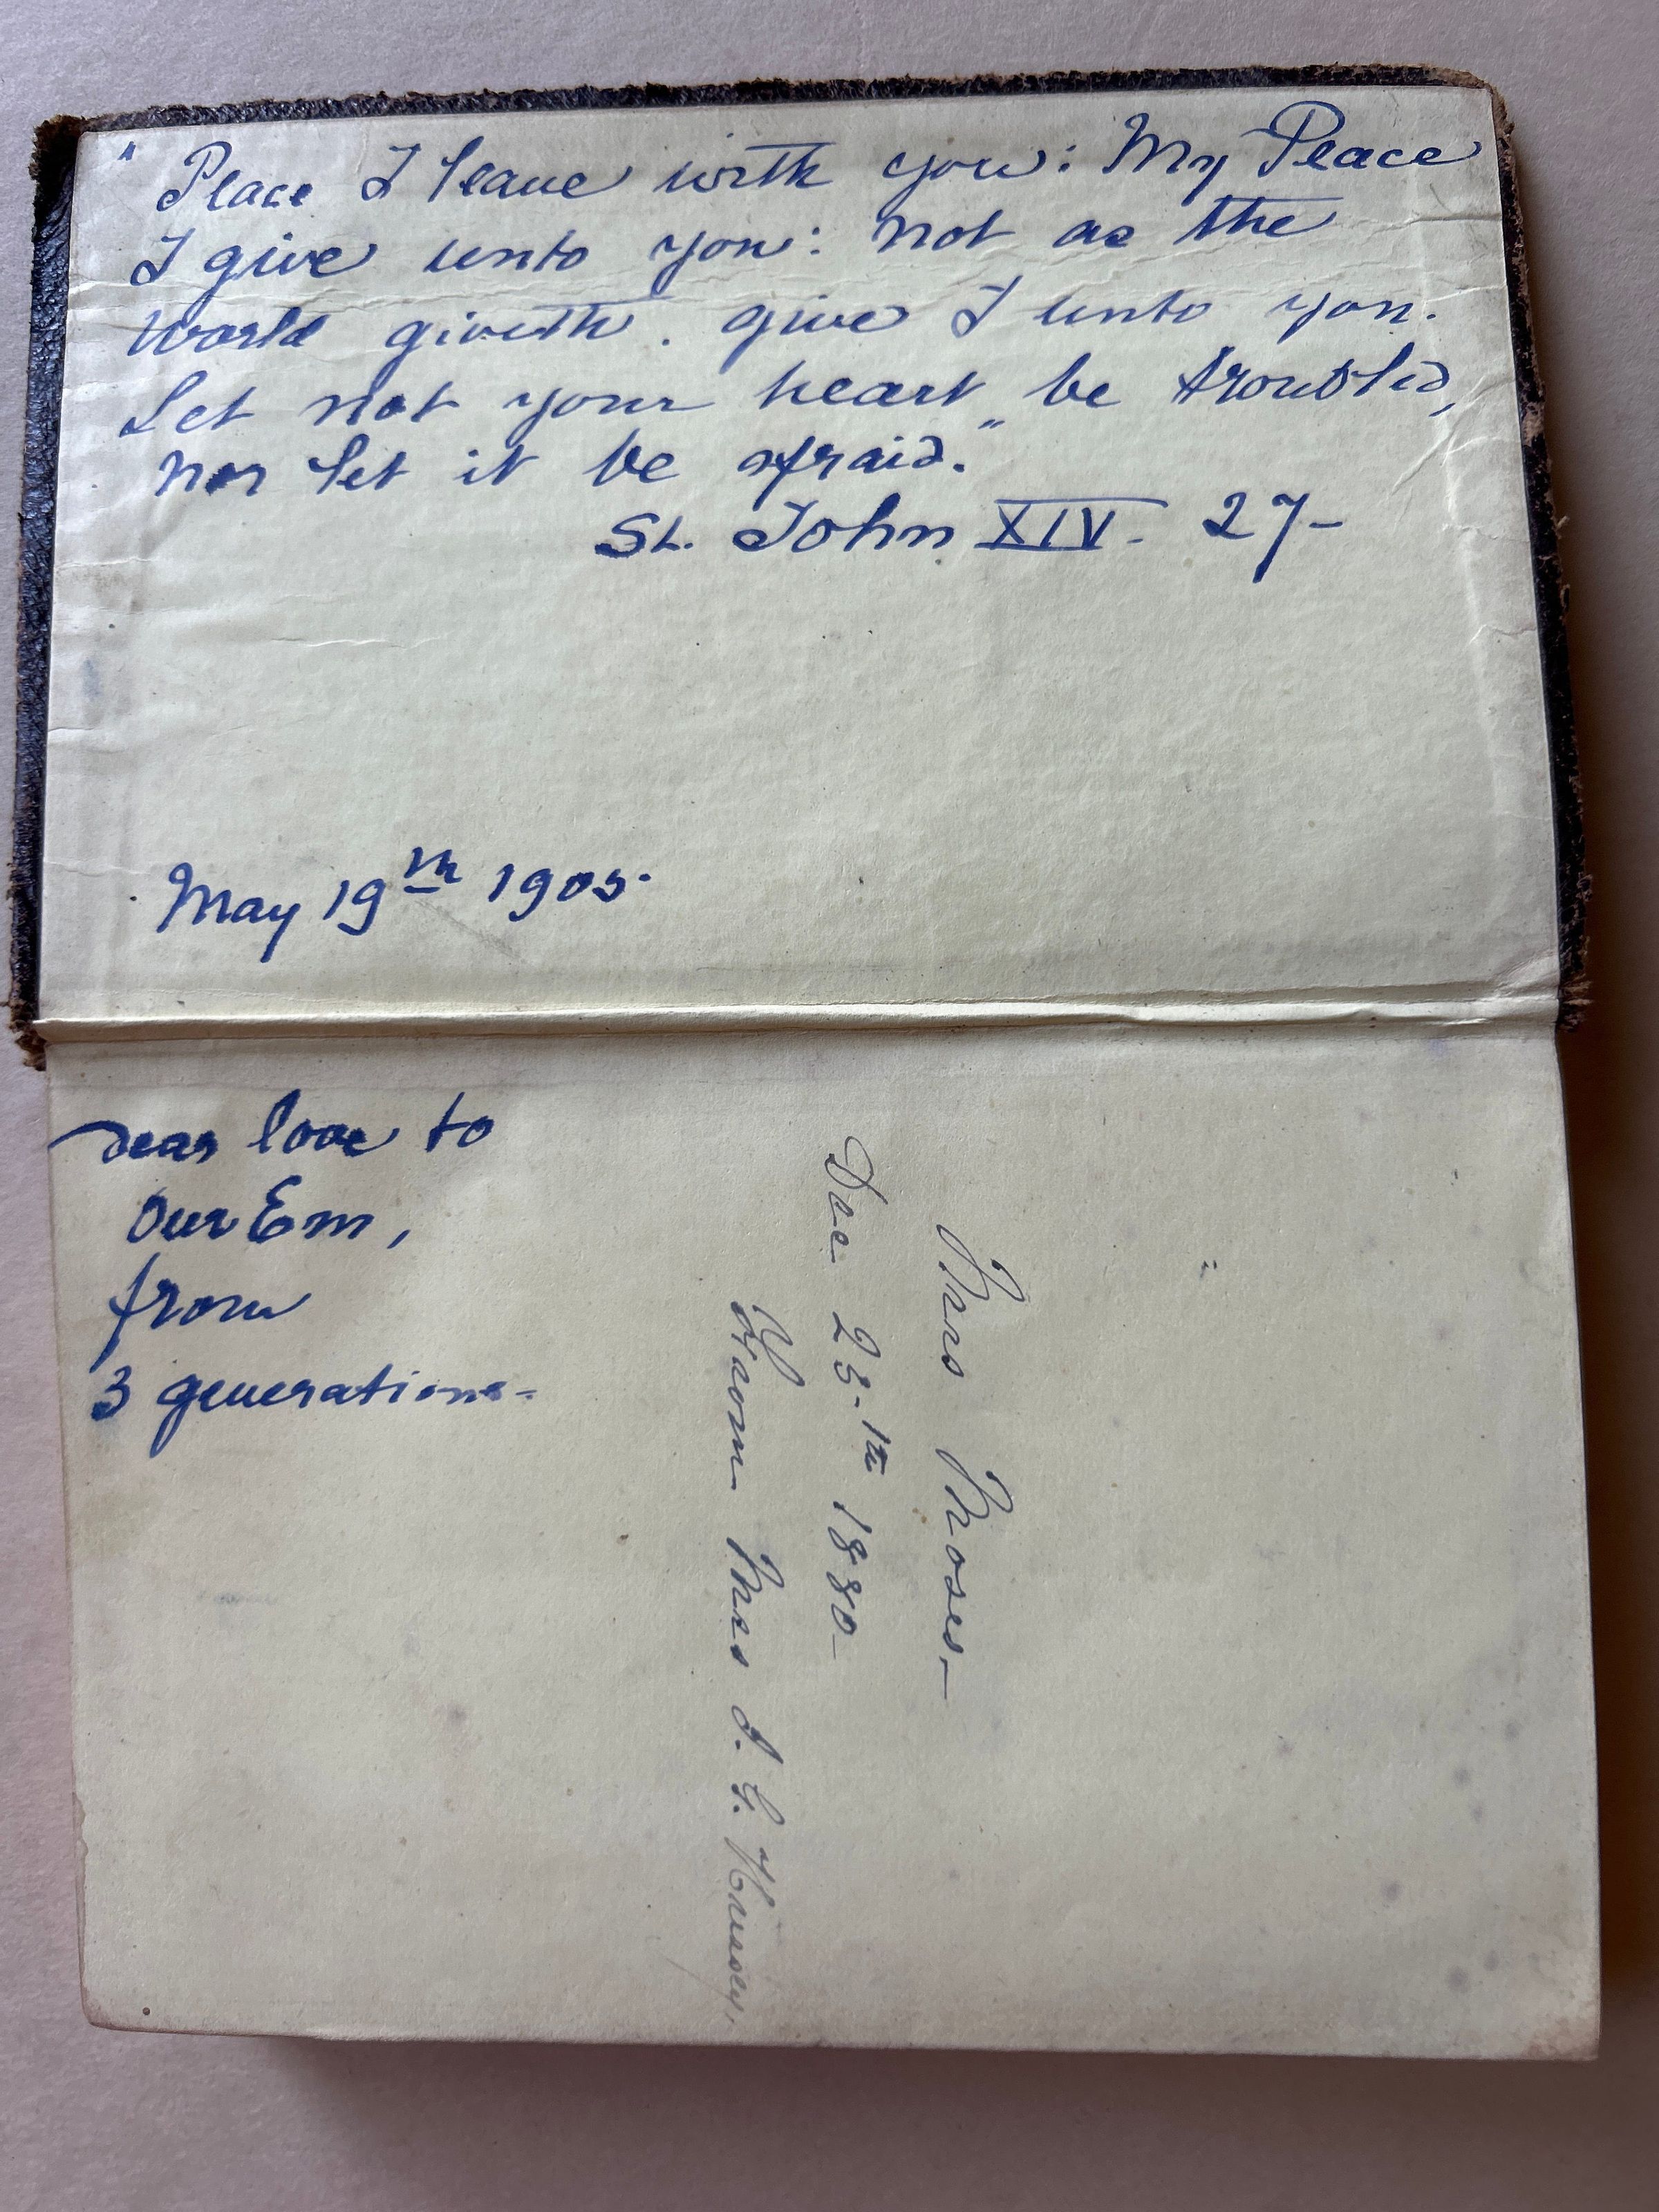 "Peace I leave with you: My Peace
I give unto you: not as the
world giveth. give I unto you.
Let not your heart be troubled,
nor let it be afraid."
St. John XIV. 27-
May 19th 1905.
Dear love to
our Em,
from
3 generations-
Mrs Moses-
Dec 25th 1880-
From Mrs